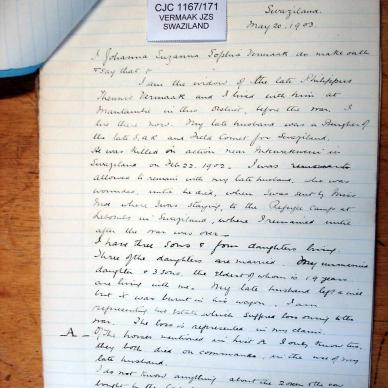 CJC 1167/171
VERMAAK JZS
SWAZILAND
Swaziland.
May 20. 1903.
I Johanna Suzanna Sophia Vermaak do make oath
& say that :
I am the widow of the late Philippus
Vermaak and I lived with him at
in this District, before the war. I
live there now. My late husband was a Burgher of
the late S.A.R. and Field Cornet for Swaziland.
He was killed in action near
Swaziland on Feb 22. 1902. I was
allowed to remain with my late husband, who was
wounded, until he died, when I was sent by
where I was staying, to the Refugee Camp at
in Swaziland, where I remained until
after the war was over.
I have three sons & four daughters living
Three of the daughters are married. My unmarried
daughter & 3 sons, the eldest of whom is 19 years
are living with me. My late husband left a will
but it was burnt in his wagon. I am
representing his Estate which suffered loss owing to the
war. The loss is represented in my claim.
A - Of the horses mentioned in list A I only know two,
they both died on commando, in the use of my
late husband.
I do not know anything about the 2 oxen